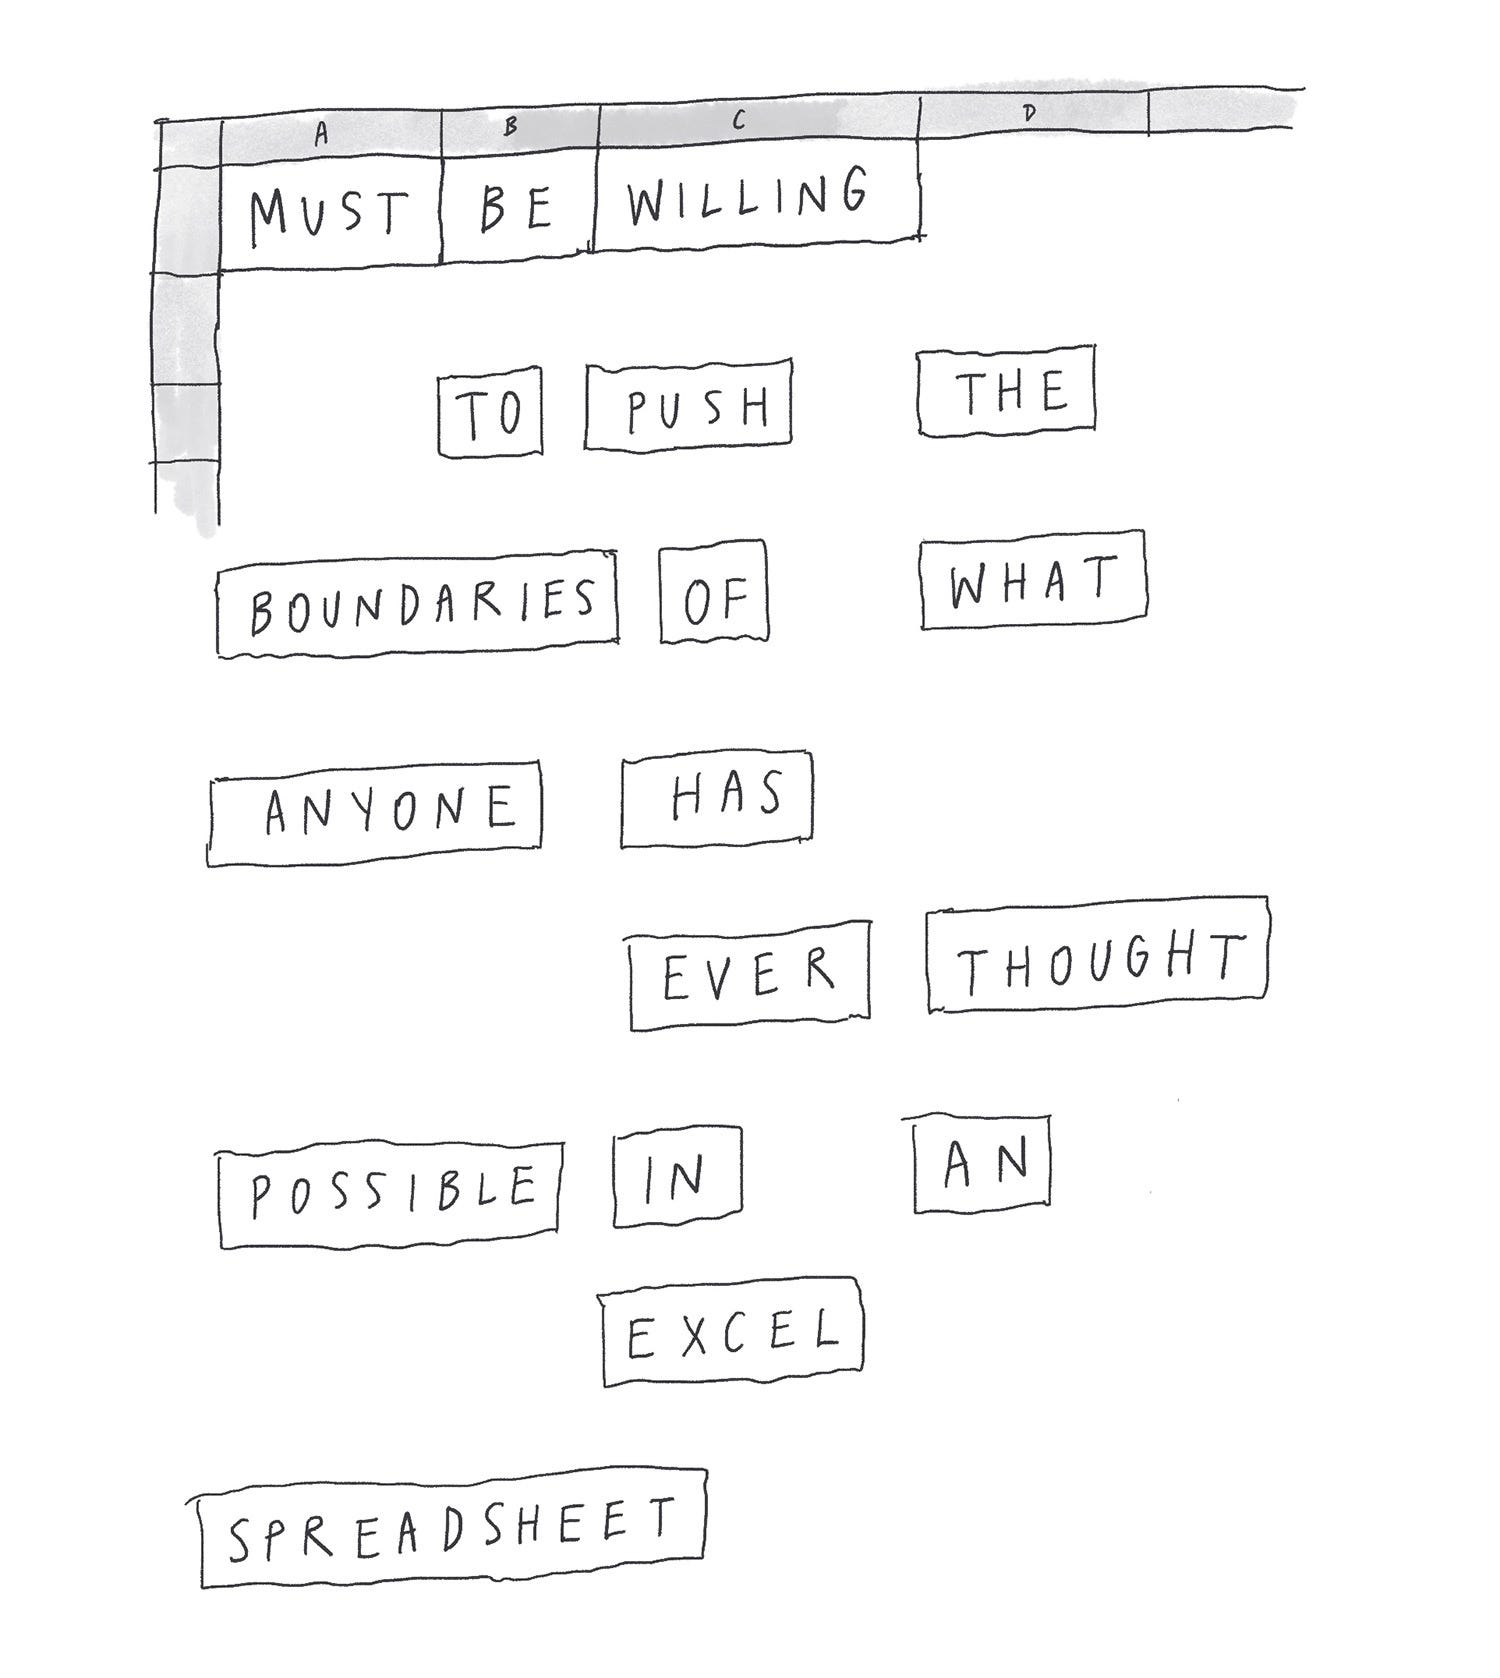 A B C D
MUST BE WILLING
TO PUSH THE
BOUNDARIES OF WHAT
ANYONE HAS
EVER THOUGHT
POSSIBLE IN AN
EXCEL
SPREADSHEET